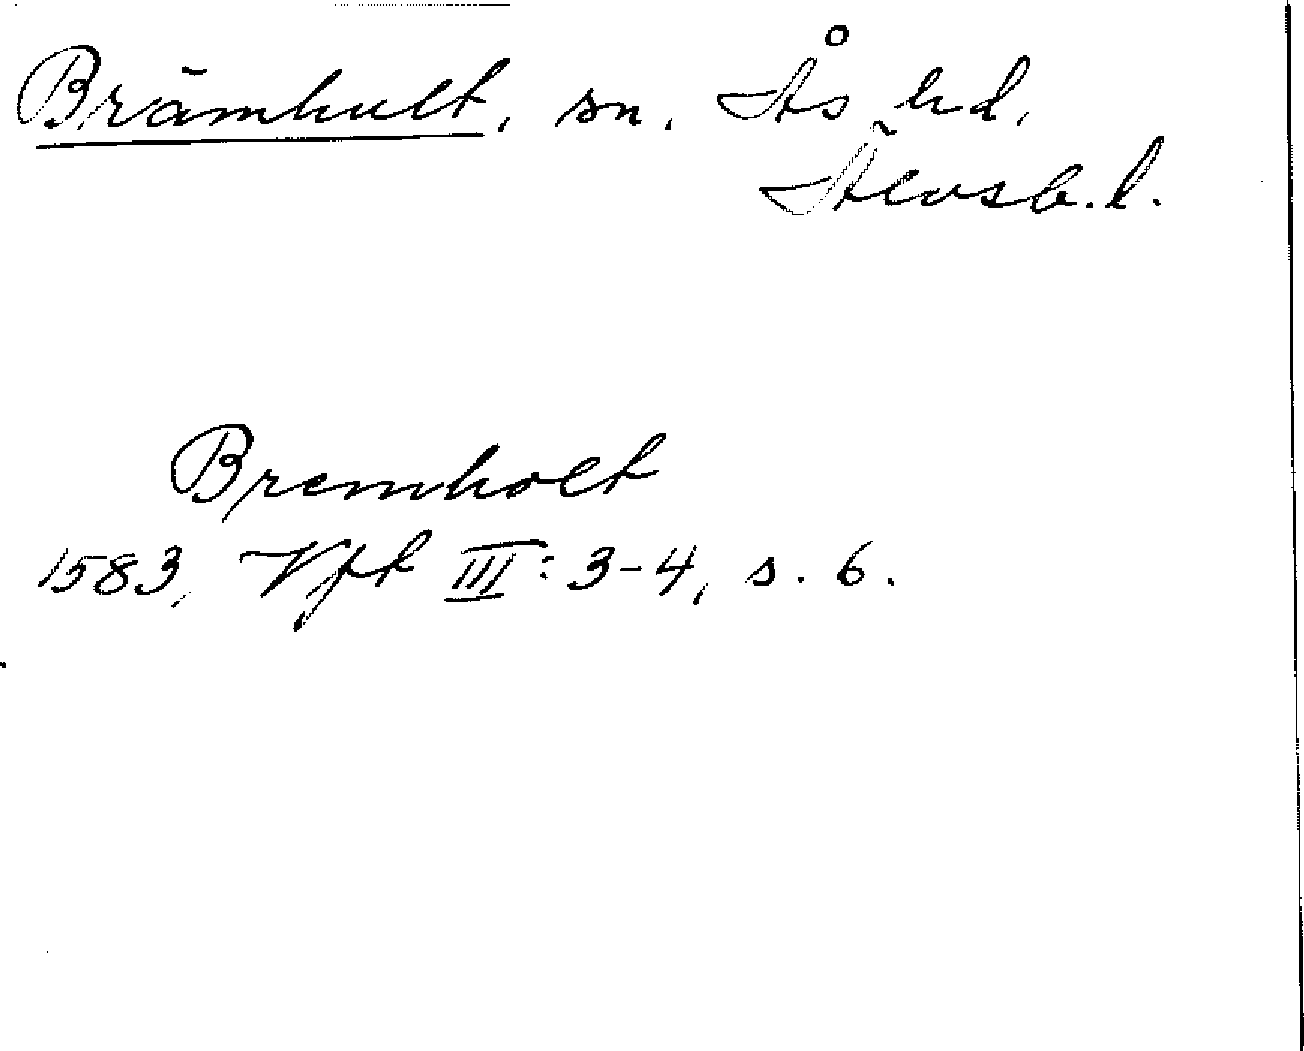 Brämhult, sn. Ås hd.
Älvsb. l.
Bremholt
1583, Vft III: 3-4, s. 6.